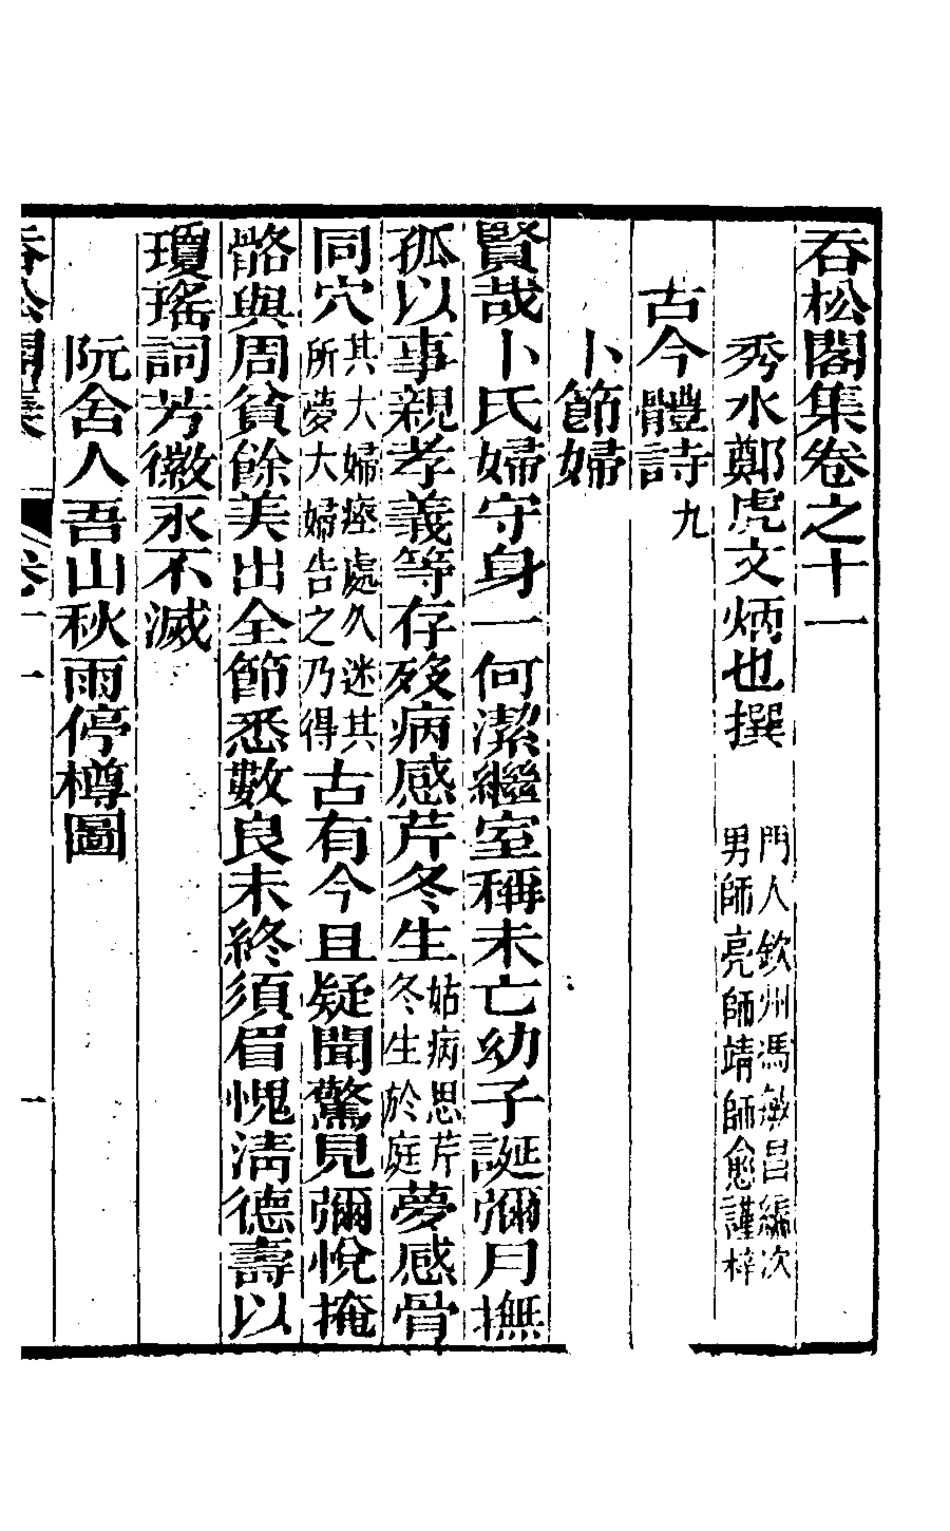 吞松閣集卷之十一
秀水鄭虎文炳也撰
門人欽州馮敏昌編次
男師亮師靖師愈謹梓
古今體詩九
卜節婦
賢哉卜氏婦守身一何潔繼室稱未亡幼子誕彌月撫
孤以事親孝義等存歿病感芹冬生姑病思芹冬生於庭夢感骨
同穴其大婦瘞處久迷其所夢大婦告之乃得古有今且疑聞驚見彌悅掩
骼與周貧餘美出全節悉數良未終須眉愧淸德壽以
瓊瑤詞芳徽永不滅
阮舍人吾山秋雨停樽圖
吞松閣集
卷十一
一